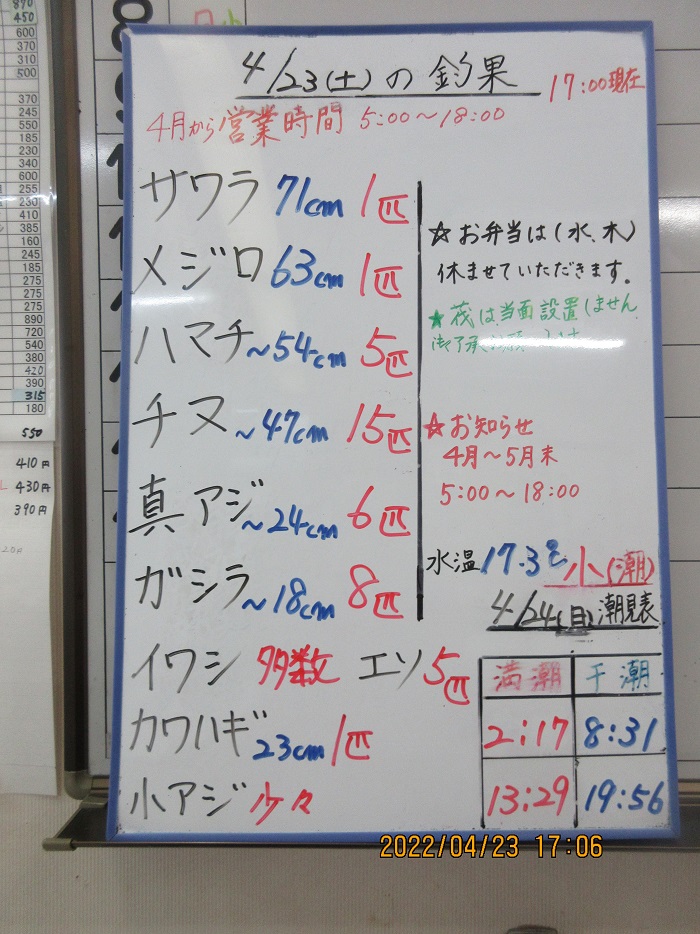 4/23(土)の釣果
17:00現在
4月から営業時間 5:00〜18:00
サワラ 71cm 1匹
メジロ 63cm 1匹
ハマチ 〜54cm 5匹
チヌ 〜47cm 15匹
真アジ 〜24cm 6匹
ガシラ 〜18cm 8匹
イワシ 多数 エソ 5匹
カワハギ 23cm 1匹
小アジ 少々
☆お弁当は(水、木)
休ませていただきます。
★筏は当面設置しません
御了承
☆お知らせ
4月〜5月末
5:00〜18:00
水温 17.3℃ 小(潮)
4/24(日)潮見表
満潮 干潮
2:17 8:31
13:29 19:56
2022/04/23 17:06
870
450
600
370
310
500
370
245
550
185
230
340
600
255
230
410
385
160
245
185
275
275
275
890
720
540
380
420
390
315
180
550
410円
430円
390円